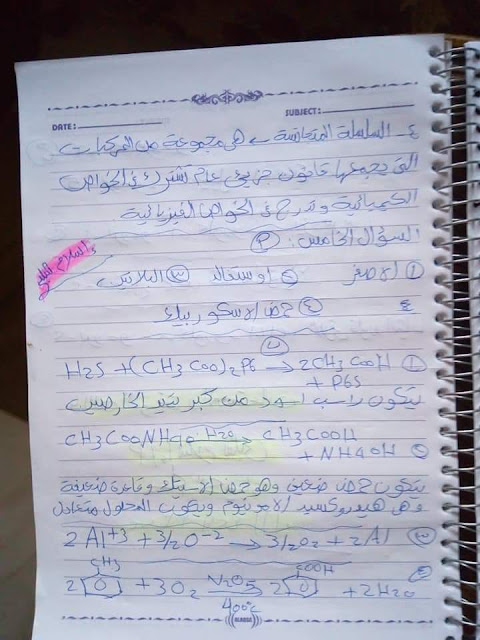 DATE: SUBJECT:
٤- السلسلة المتجانسة ← هي مجموعة من المركبات
التي يجمعها قانون جزيئي عام تشترك في الخواص
الكيميائية وتتدرج في الخواص الفيزيائية
السؤال الخامس: P
① الاصفر ② اوستفالد ③ البلاتين
④ حمض الاسكوربيك
ب
① H2S + (CH3COO)2Pb → 2CH3COOH
+ PbS
يتكون راسب اسود من كبريتيد الخارصين
CH3COONH4 H2O → CH3COOH
+ NH4OH ②
يتكون حمض ضعيف وهو حمض الاسيتك وقاعدة ضعيفة
وهي هيدروكسيد الامونيوم ويكون المحلول متعادل
2Al+3 + 3/2O-2 → 3/2O2 + 2Al ③
CH3 COOH ④
2 + 3O2 V2O5 → 2 + 2H2O
400°C